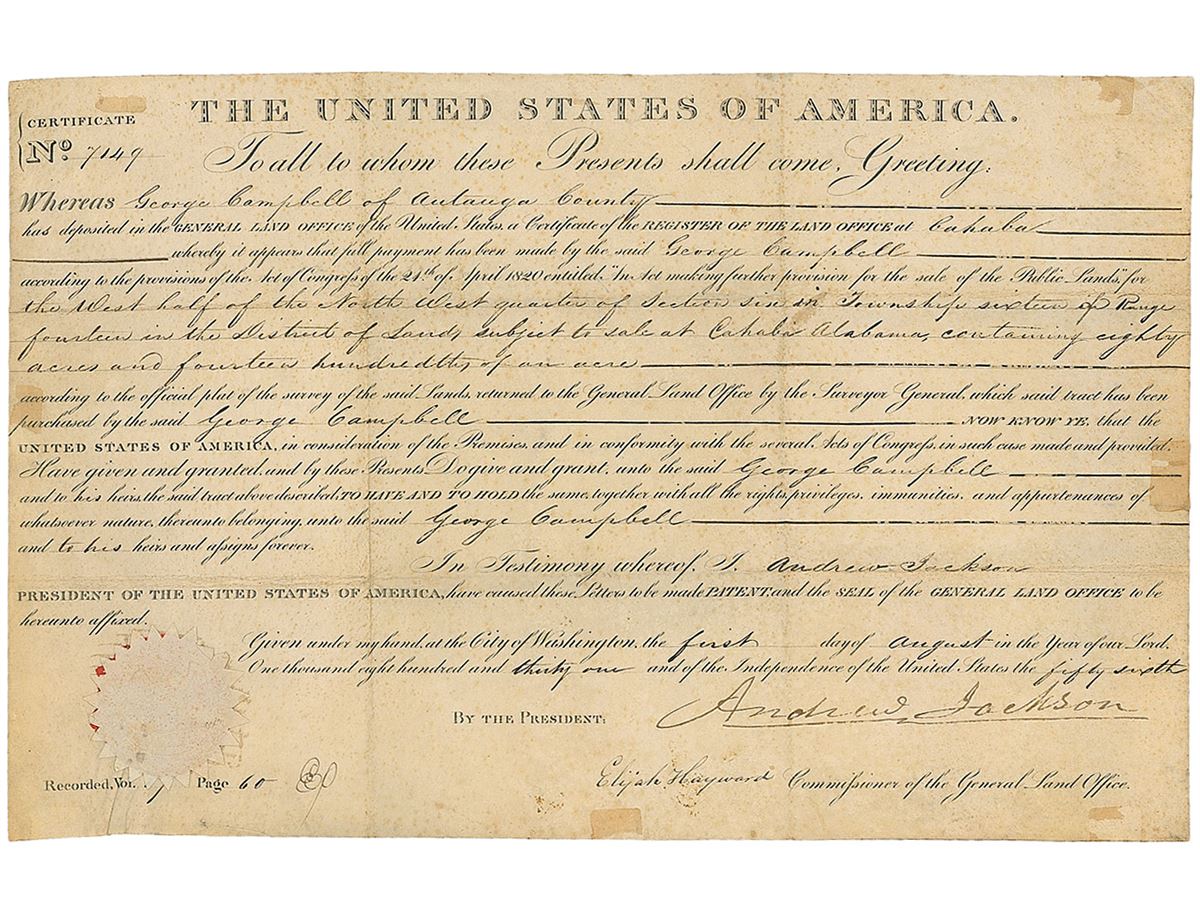 THE UNITED STATES OF AMERICA.
CERTIFICATE
No. 7149
To all to whom these Presents shall come, Greeting:
Whereas George Campbell of Autauga County
has deposited in the GENERAL LAND OFFICE of the United States, a Certificate of the REGISTER OF THE LAND OFFICE at Cahaba
whereby it appears that full payment has been made by the said George Campbell
according to the provisions of the Act of Congress of the 24th of April 1820 entitled "An Act making further provision for the sale of the Public Lands," for
the West half of the North West quarter of Section six in Township sixteen of Range
fourteen in the District of Lands subject to sale at Cahaba Alabama, containing eighty
acres and fourteen hundredths of an acre
according to the official plat of the survey of the said Lands, returned to the General Land Office by the Surveyor General, which said tract has been
purchased by the said George Campbell NOW KNOW YE, that the
UNITED STATES OF AMERICA, in consideration of the Premises, and in conformity with the several Acts of Congress, in such case made and provided,
Have given and granted, and by these Presents Do give and grant, unto the said George Campbell
and to his heirs, the said tract above described, TO HAVE AND TO HOLD the same, together with all the rights, privileges, immunities, and appurtenances of
whatsoever nature, thereunto belonging, unto the said George Campbell
and to his heirs and assigns forever.
In Testimony whereof, I, Andrew Jackson
PRESIDENT OF THE UNITED STATES OF AMERICA, have caused these Letters to be made PATENT, and the SEAL of the GENERAL LAND OFFICE to be
hereunto affixed.
Given under my hand, at the City of Washington, the first day of August in the Year of our Lord,
One thousand eight hundred and thirty one and of the Independence of the United States the fifty sixth
BY THE PRESIDENT: Andrew Jackson
Elijah Hayward Commissioner of the General Land Office.
Recorded, Vol. Page 60